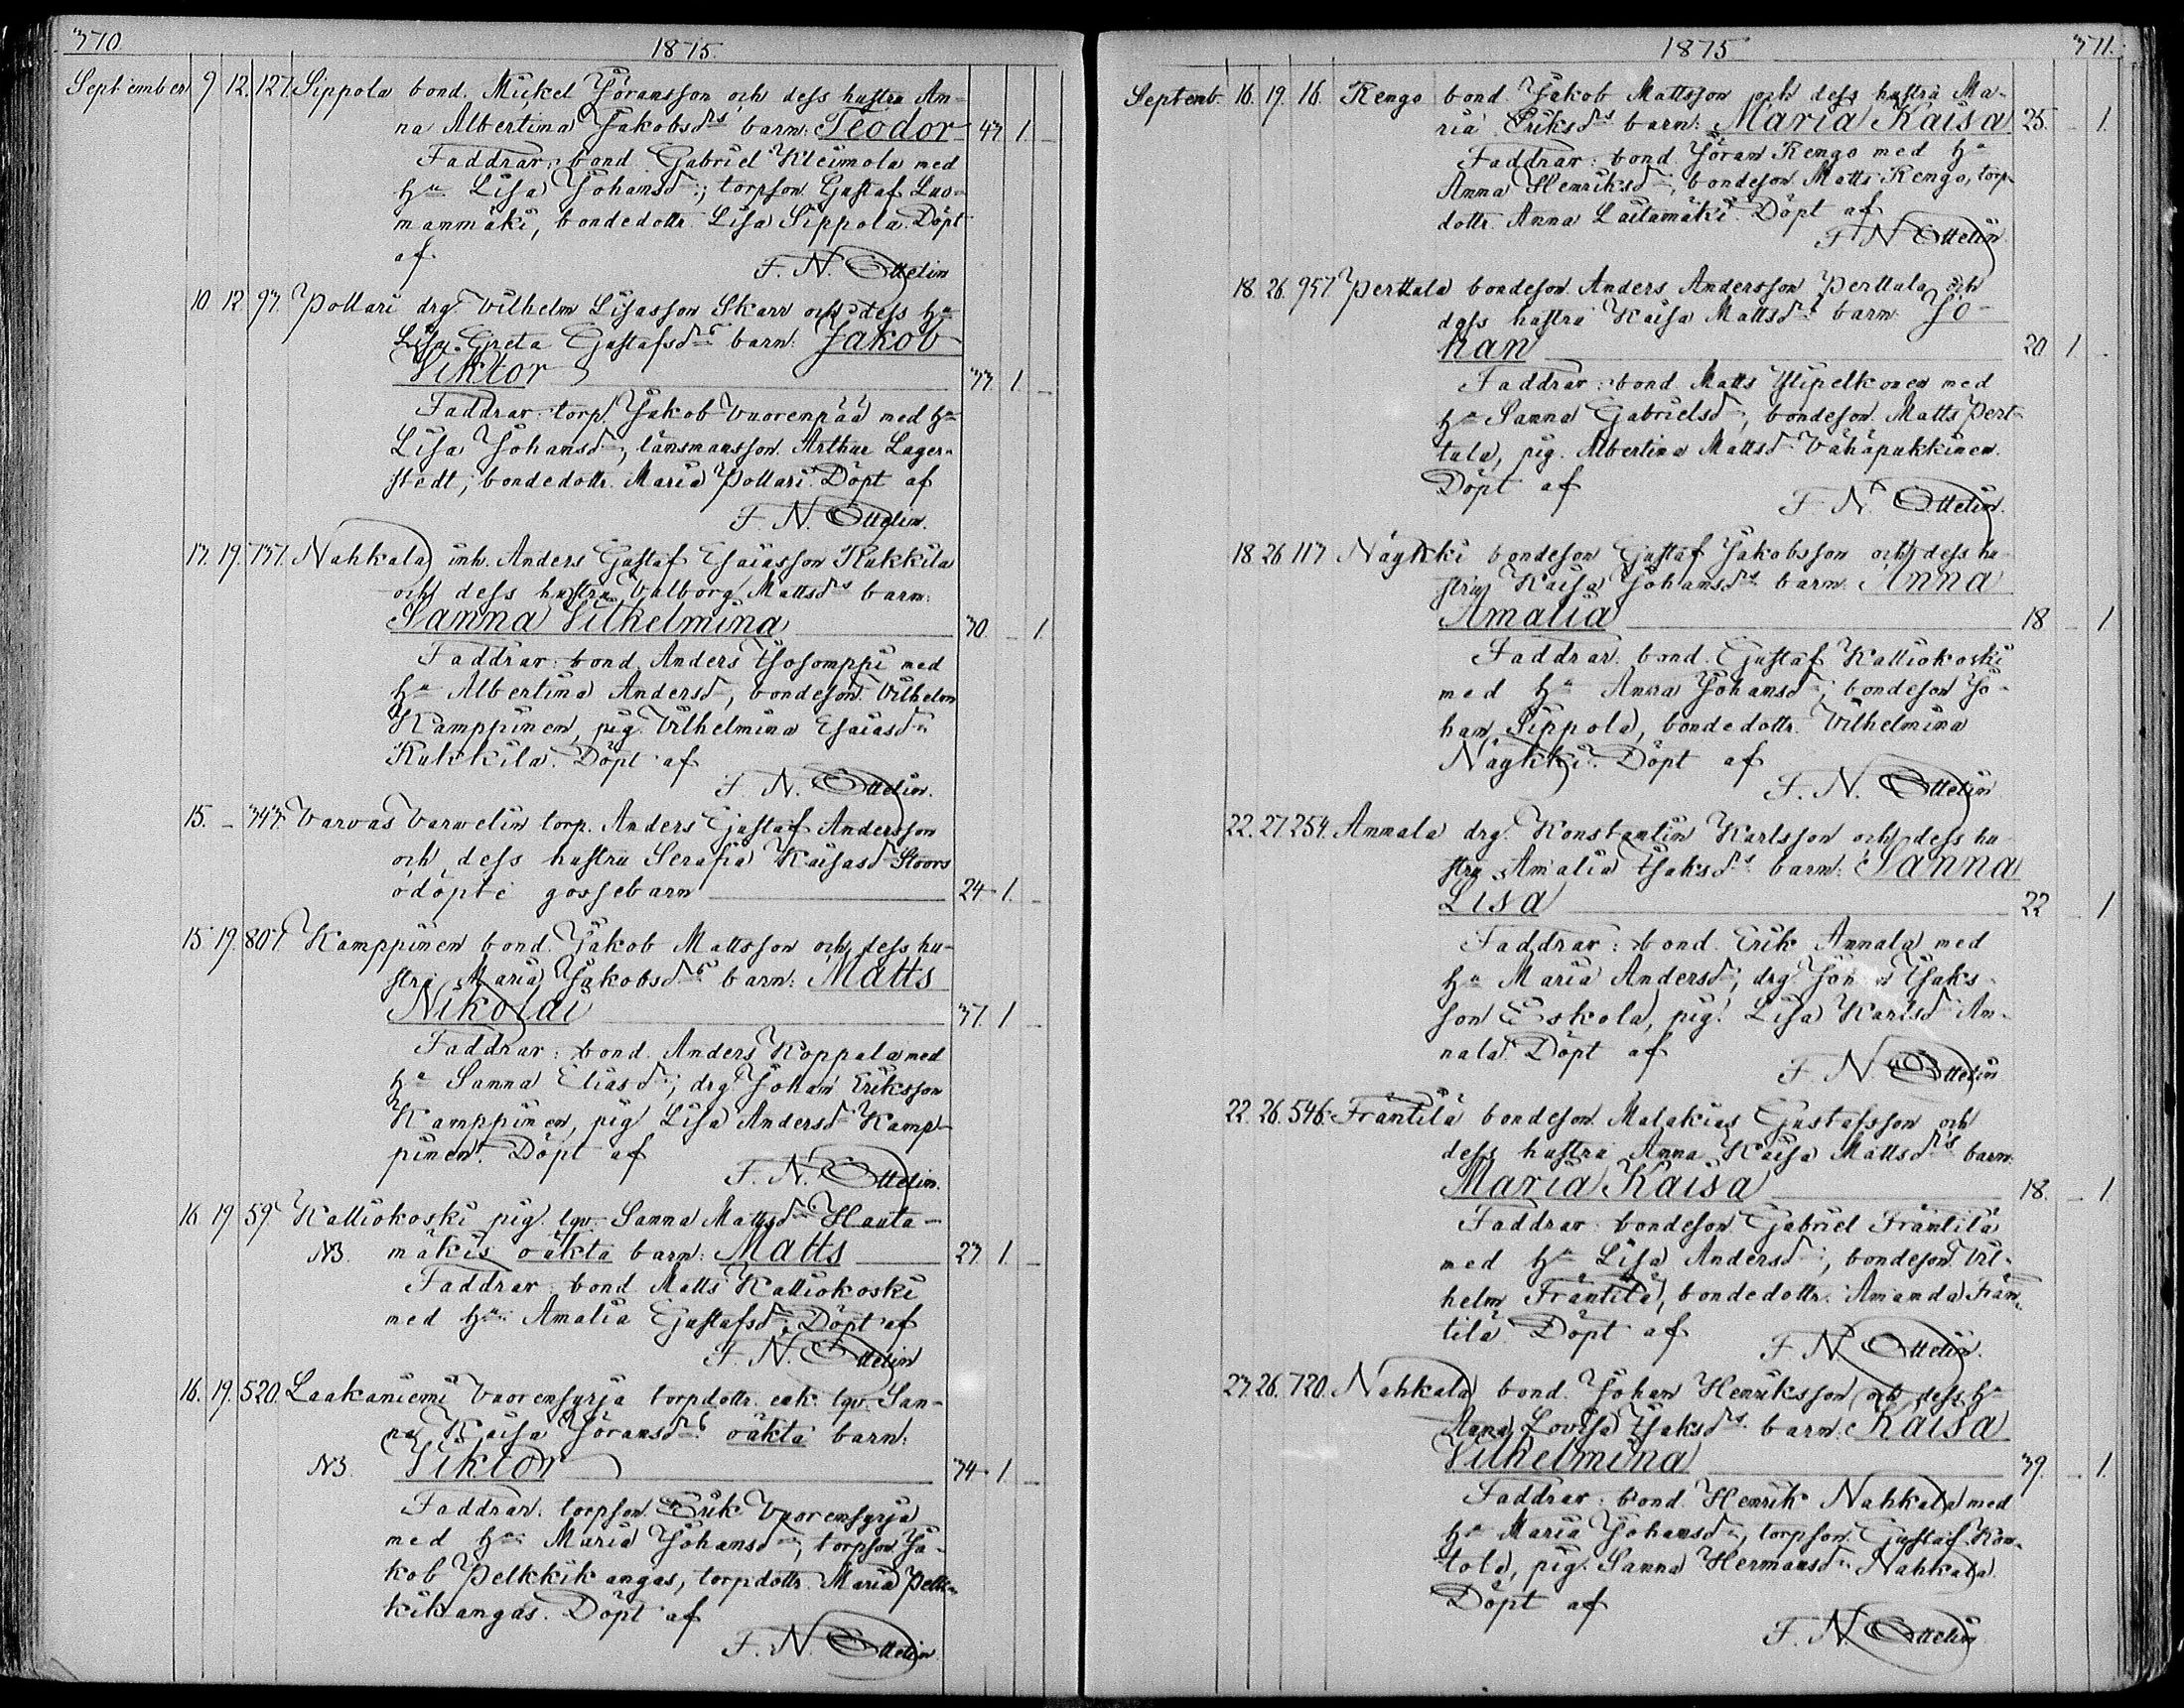 370.
1875.
September 9 12. 127. Sippola bond. Mickel Jöransson och dess hustru An-
na Albertina Jakobsdrs barn: Teodor 43 1. –
Faddrar: bond. Gabriel Kleimola med
hu Lisa Johansdr; torpson Gustaf Luo-
manmäki, bondedottr. Lisa Sippola. Döpt
af
F. N. Ottelin
10. 12. 93. Pollari drg. Vilhelm Lisasson Skarr och dess hu
Lisa Greta Gustafsdrs barn: Jakob
Viktor 33. 1. –
Faddrar: torp. Jakob Vuorenpää med hu
Lisa Johansdr; länsmansson. Arthur Lager-
stedt; bondedottr. Maria Pollari. Döpt af
F. N. Ottelin.
13. 19. 737. Nahkala inh. Anders Gustaf Esaiasson Kukkila
och dess hustru Valborg Mattsdrs barn:
Sanna Vilhelmina 30. – 1.
Faddrar: bond. Anders Isosomppi med
hu Albertina Andersdr; bondeson. Vilhelm
Kamppinen, pig. Vilhelmina Esaiasdr
Kukkila. Döpt af
F. N. Ottelin.
15. – 343. Varvas Varvelin torp. Anders Gustaf Andersson
och dess hustru Serafia Kaisasdr Stoors
odöpte gossebarn 24 1. –
15. 19. 807. Kamppinen bond. Jakob Mattsson och dess hu-
stru Maria Jakobsdrs barn: Matts
Nikolai 37. 1 –
Faddrar: bond. Anders Koppala med
hu Sanna Eliasdr; drg. Johan Eriksson
Kamppinen, pig. Lisa Andersdr Kamp-
pinen. Döpt af
F. N. Ottelin.
16 19 59. Kalliokoski pig. lgv. Sanna Mattsdr Hauta-
NB. mäkis oäkta barn: Matts 23. 1. –
Faddrar: bond. Matts Kalliokoski
med hu Amalia Gustafsdr. Döpt af
F. N. Ottelin
16. 19. 520. Laakaniemi Vuorensyrjä torpdottr. eak. lgv. San-
na Kaisa Jöransdrs oäkta barn:
NB. Viktor 34 1. –
Faddrar: torpson. Erik Vuorensyrjä
med hu Maria Johansdr; torpson. Ja-
kob Pelkkikangas, torpdottr. Maria Pelk-
kikangas. Döpt af
F. N. Ottelin.
1875
371.
Septemb. 16. 19. 16. Rengo bond. Jakob Mattsson och dess hustru Ma-
ria Eriksdrs barn: Maria Kaisa 25. – 1.
Faddrar: bond. Jöran Rengo med hu
Anna Henriksdr; bondeson. Matts Rengo, torp-
dottr. Anna Laitamäki. Döpt af
F N Ottelin.
18. 26. 957. Perttula bondeson. Anders Andersson Perttula och
dess hustru Kaisa Mattsdrs barn: Jo-
han 20 1. –
Faddrar: bond. Matts Ylipelkonen med
hu Sanna Gabrielsdr; bondeson. Matts Pert-
tula, pig. Albertina Mattsdr Vähäpukkinen.
Döpt af
F. N. Ottelin.
18. 26 113 Näykki bondeson Gustaf Jakobsson och dess hu-
stru Kaisa Johansdrs barn: Anna
Amalia 18 – 1
Faddrar: bond. Gustaf Kalliokoski
med hu Anna Johansdr; bondeson Jo-
han Sippola, bondedottr. Vilhelmina
Näykki. Döpt af
F. N. Ottelin
22. 27. 254. Annala drg. Konstantin Karlsson och dess hu-
stru Amalia Isaksdrs barn: Sanna
Lisa 22 – 1
Faddrar: bond. Erik Annala med
hu Maria Andersdr; drg. Isaks-
son Eskola, pig. Lisa Karlsdr An-
nala. Döpt af
F. N. Ottelin
22. 26. 546. Fräntilä bondeson. Malakias Gustafsson och
dess hustru Anna Kaisa Mattsdrs barn:
Maria Kaisa 18. – 1
Faddrar: bondeson. Gabriel Fräntilä
med hu Lisa Andersdr; bondeson. Vil-
helm Fräntilä, bondedottr. Amanda Frän-
tilä. Döpt af
F. N. Ottelin.
23. 26. 720. Nahkala bond. Johan Henriksson och dess hu
Anna Lovisa Isaksdrs barn: Kaisa
Vilhelmina 39. – 1.
Faddrar: bond. Henrik Nahkala med
hu Maria Johansdr; torpson. Gustaf Kon-
tola, pig. Sanna Hermansdr Nahkala.
Döpt af
F. N. Ottelin